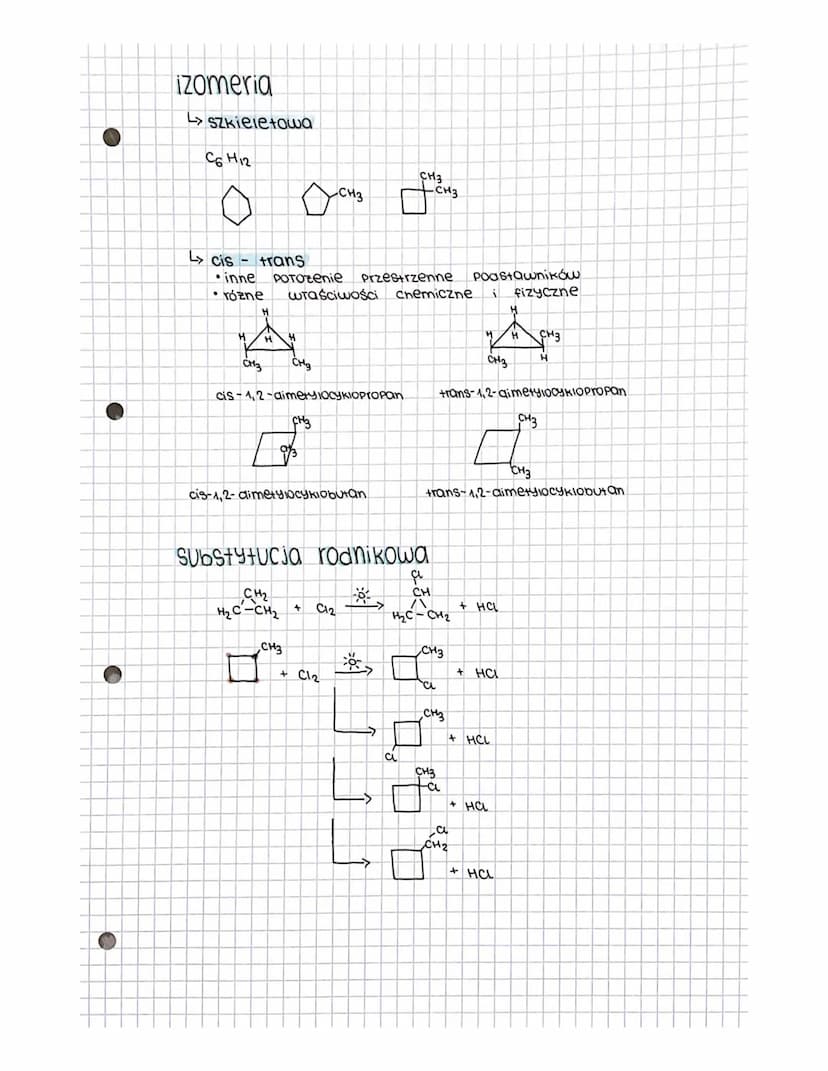 izomeria
↳ szkieletowa
C6H12
CH3
CH3 CH3
↳ cis - trans
• inne położenie przestrzenne podstawników
• różne właściwości chemiczne i fizyczne
H H
H H H H H CH3
CH3 CH3 CH3 H
cis-1,2-dimetylocyklopropan trans-1,2-dimetylocyklopropan
CH3 CH3
CH3 CH3
cis-1,2-dimetylocyklobutan trans-1,2-dimetylocyklobutan
substytucja rodnikowa
Cl
CH2 CH
H2C-CH2 + Cl2 → H2C-CH2 + HCl
CH3 CH3
+ Cl2 → + HCl
Cl
CH3
+ HCl
Cl
CH3
Cl
+ HCl
Cl
CH2
+ HCl